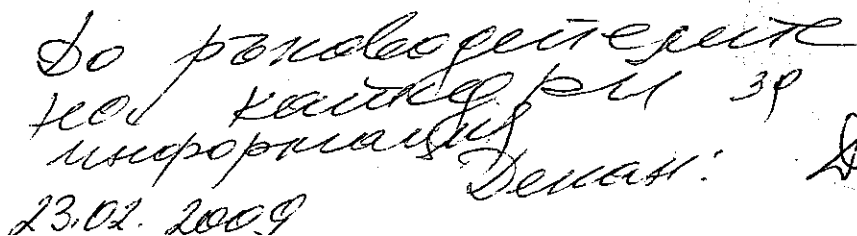 До ръководителите
на катедри за
информация
Декан:
23.02.2009